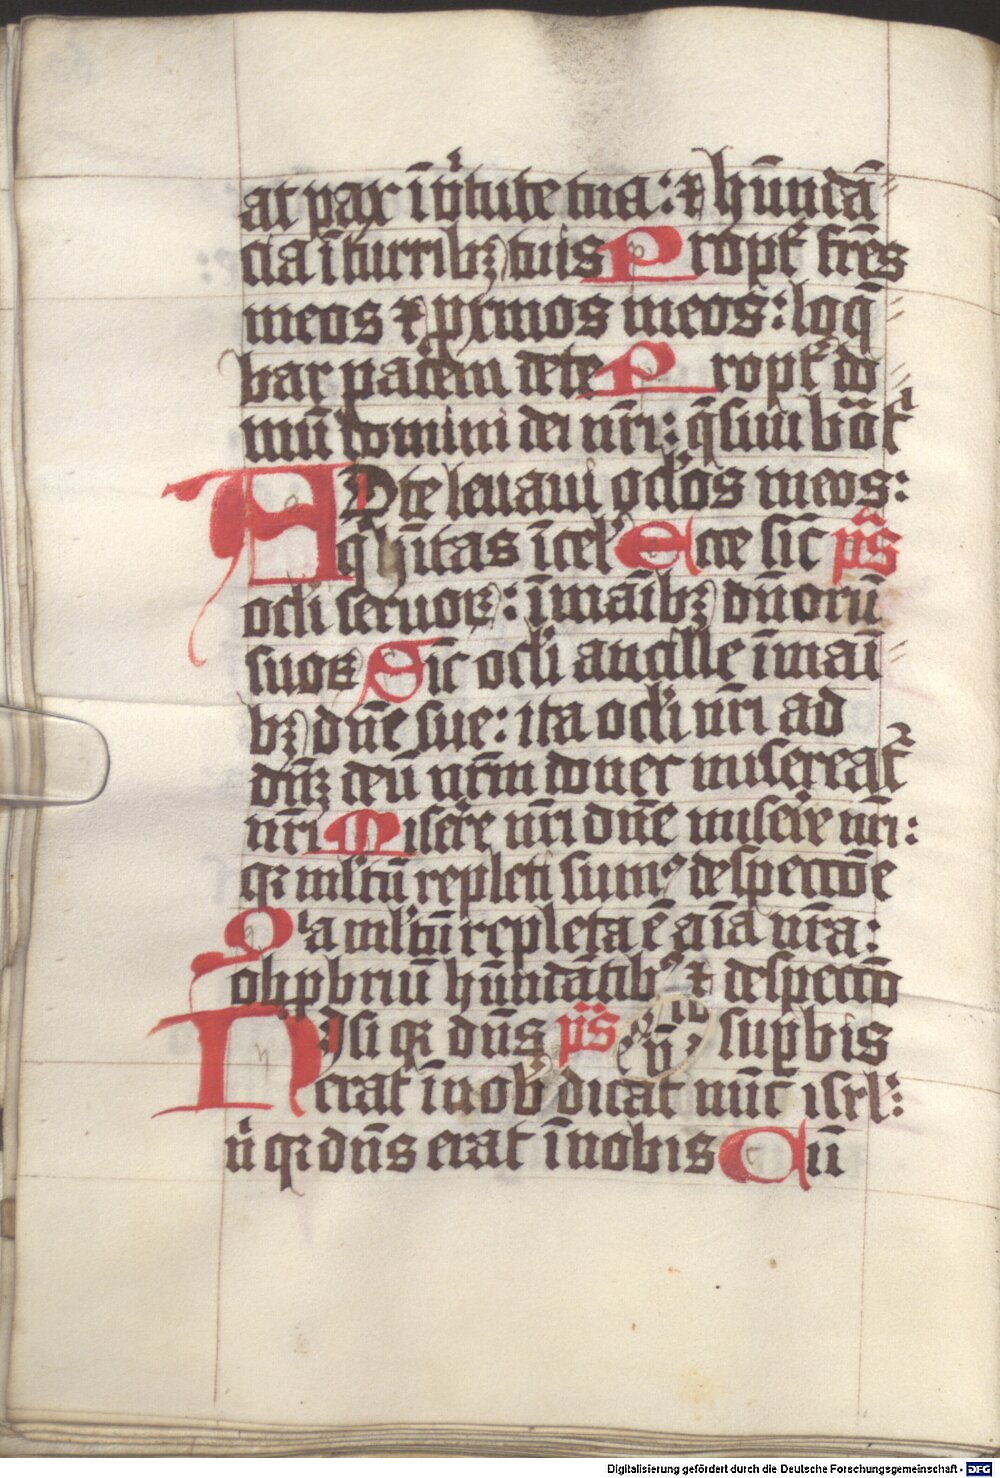 at pax ī v̓tute tua: ⁊ hūndā⸗
cia ī turribꝫ tuis Propt̓ fr̄es
meos ⁊ pxmos meos: loq̄⸗
bar pacem de te Propt̓ do⸗
mū domini dei nr̄i: q̄siui bōa t̓
AD te leuaui oclos meos:
q hītas ī cel̓ Ecce sic̄ ps̄
ocli seruoꝝ: ī manībꝫ dn̄orū
suoꝝ Sic̄ ocli ancille ī mai⸗
bꝫ dn̄e sue: ita ocl̓i nr̄i ad
dn̄ꝫ deū nr̄m donec misereat̓
nr̄i Misēre nr̄i dn̄e misēre nr̄i:
qꝛ ml̓tū repleti sumꝰ despectōe
Qia ml̓tū repleta ē aīa nr̄a:
obpbriū hūndātibꝰ ⁊ despectō
NIsi qꝛ dn̄s ps̄ supbis
erat ī nob̓ dicat nūc isrl̓:
n̓ qꝛ dn̄s erat ī nobis Cū
Digitalisierung gefördert durch die Deutsche Forschungsgemeinschaft - DFG